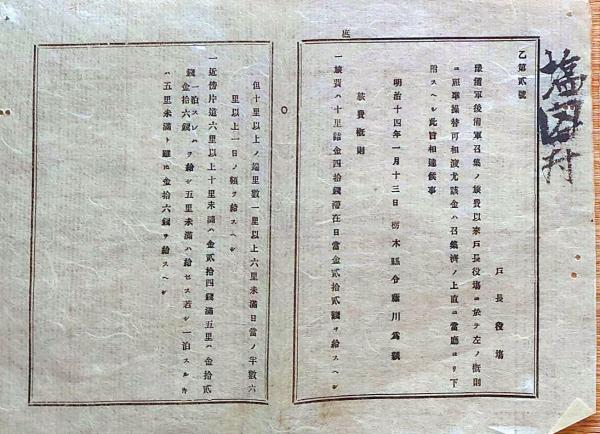 塩田村
乙第貳號
戸長役塲
豫備軍後備軍召集ノ旅費以來戸長役塲ニ於テ左ノ概則
ニ照準操替可相渡尤該金ハ召集濟ノ上直ニ當廳ヨリ下
附スヘシ此旨相達候事
明治十四年一月十三日 栃木縣令藤川爲親
旅費概則
一旅費ハ十里詰金四拾錢滯在日當金貳拾貳錢ヲ給スヘシ
庶
但十里以上ノ端里數一里以上六里未滿日當ノ半數六
里以上一日ノ額ヲ給スヘシ
一近傍片道六里以上十里未滿ハ金貳拾四錢滿五里ハ金拾貳
錢一泊スレハ金拾六錢ヲ給シ五里未滿ハ給セス若シ一泊スルキ
ハ五里未滿ト雖モ金拾六錢ヲ給スヘシ